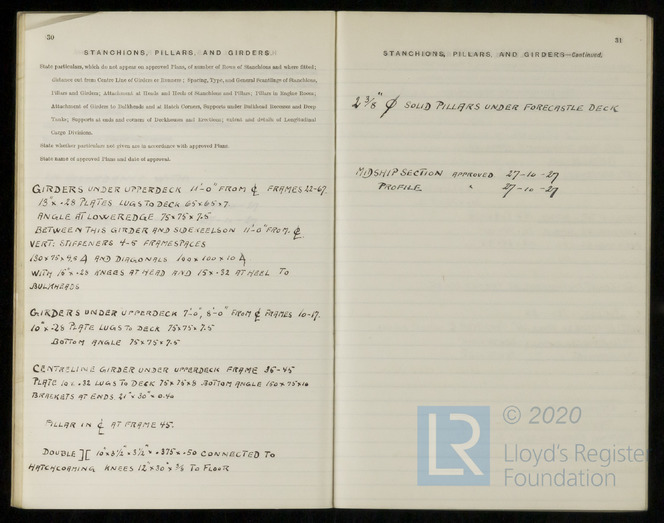 30
STANCHIONS, PILLARS, AND GIRDERS.
State particulars, which do not appear on approved Plans, of number of Rows of Stanchions and where fitted;
distance out from Centre Line of Girders or Runners; Spacing, Type, and General Scantlings of Stanchions,
Pillars and Girders; Attachment at Heads and Heels of Stanchions and Pillars; Pillars in Engine Room;
Attachment of Girders to Bulkheads and at Hatch Corners, Supports under Bulkhead Recesses and Deep
Tanks; Supports at ends and corners of Deckhouses and Erections; extent and details of Longitudinal
Cargo Divisions.
State whether particulars not given are in accordance with approved Plans.
State name of approved Plans and date of approval.
GIRDERS UNDER UPPERDECK 11'-0" FROM ℄ FRAMES 22-67.
13"× .28 PLATES LUGS TO DECK 65×65×7.
ANGLE AT LOWEREDGE 75×75×7.5
BETWEEN THIS GIRDER AND SIDE KEELSON 11'-0" FROM. ℄
VERT: STIFFENERS 4-5 FRAMESPACES
AND DIAGONALS 100×100×10
WITH 15"× .28 KNEES AT HEAD AND 15× .32 AT HEEL TO
BULKHEADS
GIRDERS UNDER UPPERDECK 7'-0", 8'-0" FROM ℄ FRAMES 10-17.
10"× .28 PLATE LUGS TO DECK 75×75×7.5
BOTTOM ANGLE 75×75×7.5
CENTRELINE GIRDER UNDER UPPERDECK FRAME 35-45
PLATE 10× .32 LUGS TO DECK 75×75×8 BOTTOM ANGLE 150×75×10
BRACKETS AT ENDS 21"×30"×0.40
PILLAR IN ℄ AT FRAME 45.
DOUBLE ][ 10"×3½"×3½"× .375× .50 CONNECTED TO
HATCHCOAMING KNEES 12"×30"×⅜ TO FLOOR
31
STANCHIONS, PILLARS, AND GIRDERS—Continued.
2 3/8" ϕ SOLID PILLARS UNDER FORECASTLE DECK
MIDSHIP SECTION APPROVED 27-10-27
PROFILE " 27-10-27
LR © 2020
Lloyd's Register
Foundation